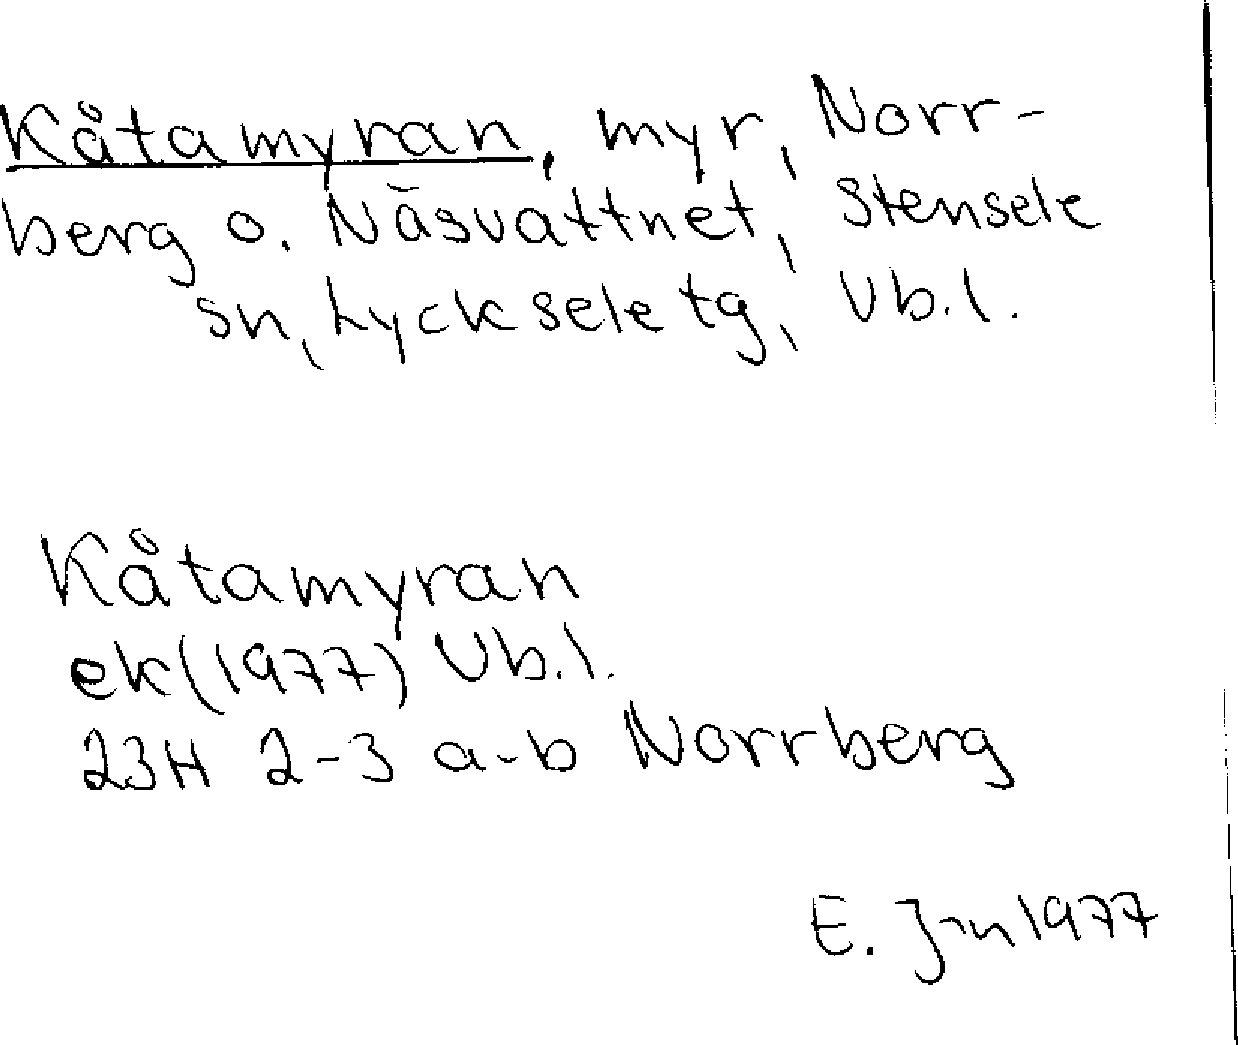 Kåtamyran, myr, Norr-
berg o. Näsvattnet, Stensele
sn, Lycksele tg, Vb.l.
Kåtamyran
ek(1977) Vb.l.
23H 2-3 a-b Norrberg
E. Jn 1977